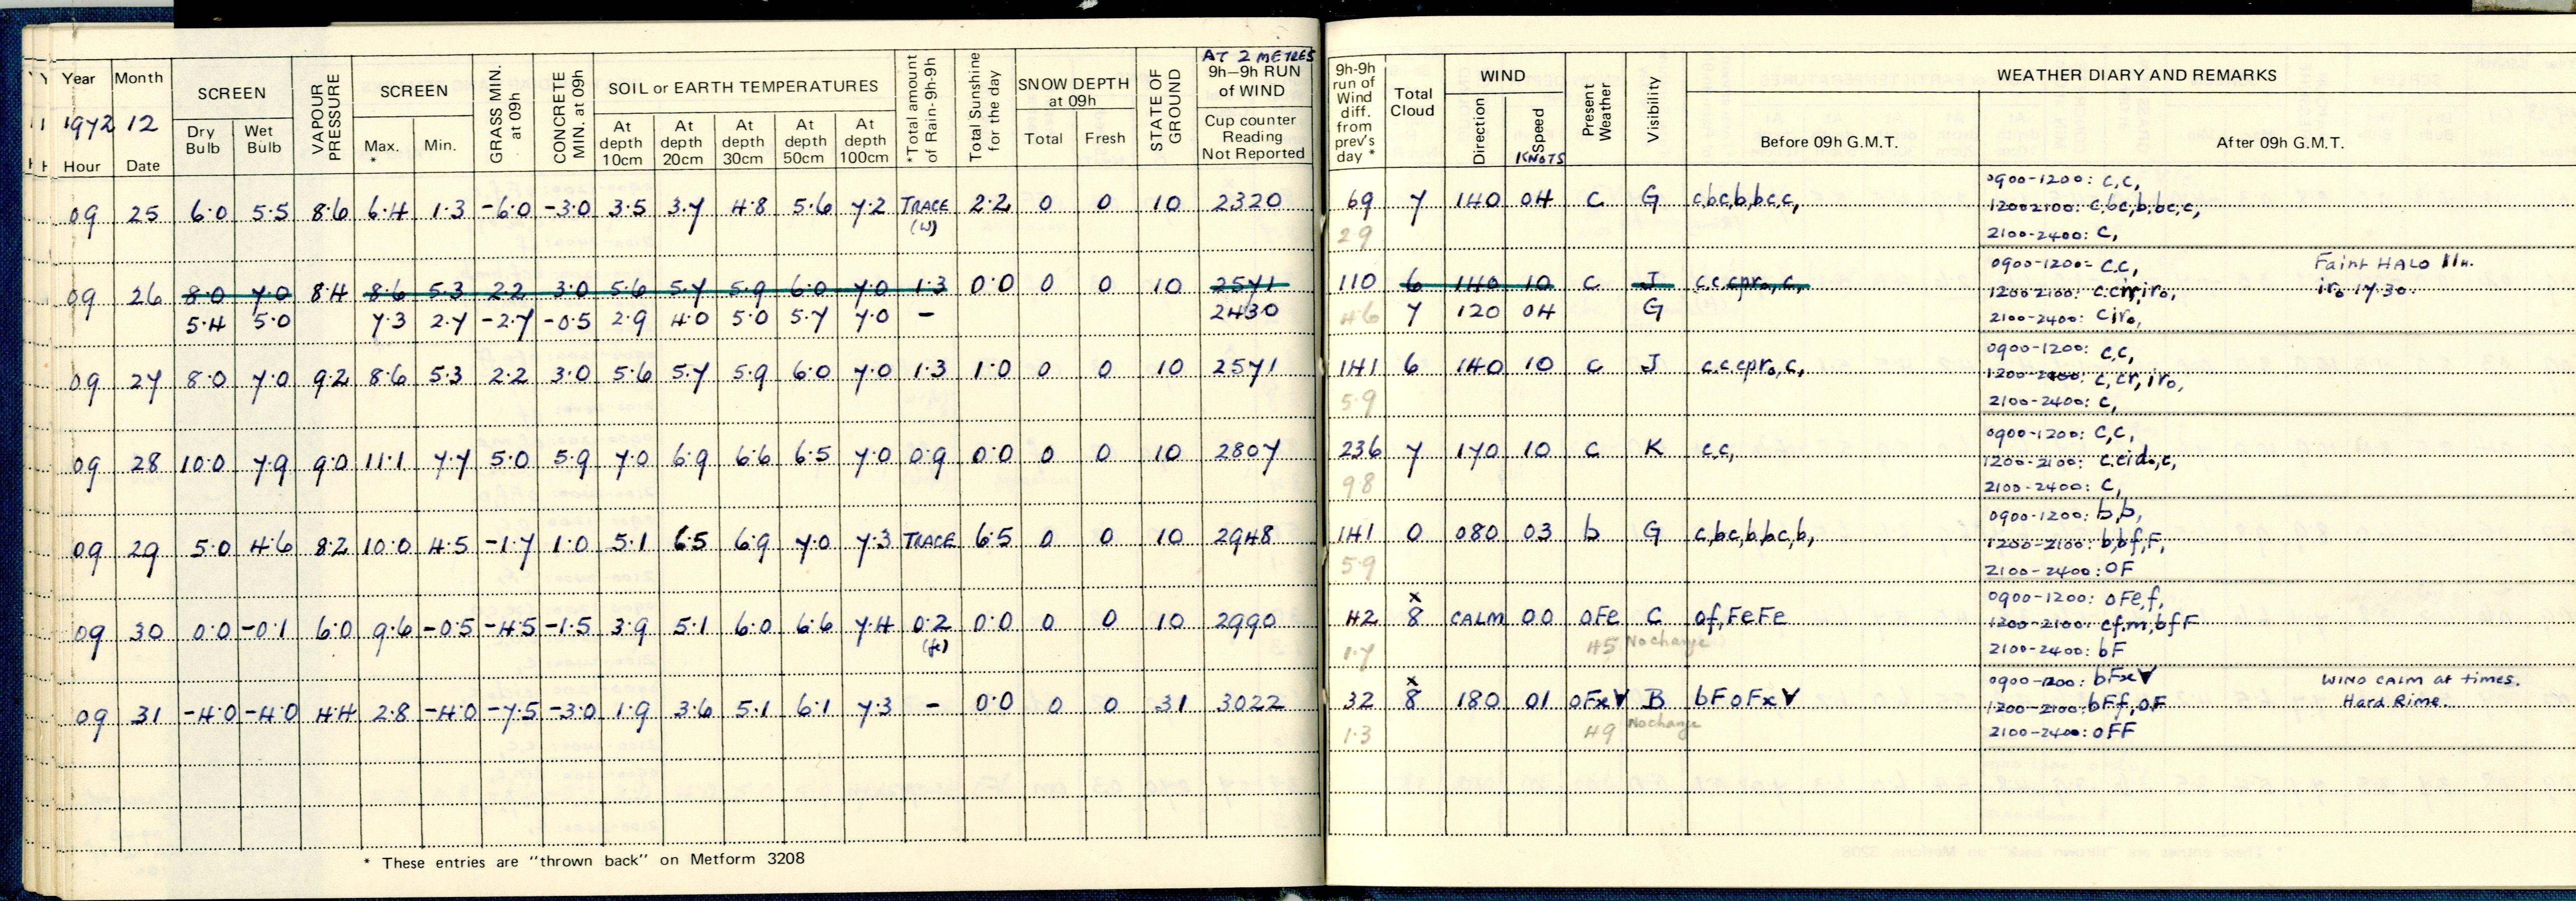 AT 2 METRES
Year Month SCREEN VAPOUR PRESSURE SCREEN GRASS MIN. at 09h CONCRETE MIN. at 09h SOIL or EARTH TEMPERATURES *Total amount of Rain-9h-9h Total Sunshine for the day SNOW DEPTH at 09h STATE OF GROUND 9h–9h RUN of WIND
1972 12 Dry Bulb Wet Bulb Max. * Min. At depth 10cm At depth 20cm At depth 30cm At depth 50cm At depth 100cm Total Fresh Cup counter Reading Not Reported
Hour Date
9h-9h run of Wind diff. from prev's day * Total Cloud WIND Direction Speed KNOTS Present Weather Visibility WEATHER DIARY AND REMARKS
Before 09h G.M.T. After 09h G.M.T.
09 25 6.0 5.5 8.6 6.4 1.3 -6.0 -3.0 3.5 3.7 4.8 5.6 7.2 TRACE 2.2 0 0 10 2320
(w)
69 7 140 04 c G c,bc,b,bc,c,
29
0900-1200: c,c,
1200-2100: c,bc,b,bc,c,
2100-2400: c,
09 26 8.0 7.0 8.4 8.6 5.3 2.2 3.0 5.6 5.7 5.9 6.0 7.0 1.3 0.0 0 0 10 2571
5.4 5.0 7.3 2.7 -2.7 -0.5 2.9 4.0 5.0 5.7 7.0 - 2430
110 6 140 10 c J c.c.cpro,c,
46 7 120 04 G
0900-1200= c.c, Faint HALO 11H.
1200-2100: iro, iro 17.30.
2100-2400: ciro,
09 27 8.0 7.0 9.2 8.6 5.3 2.2 3.0 5.6 5.7 5.9 6.0 7.0 1.3 1.0 0 0 10 2571
141 6 140 10 c J c.c.cpro,c,
5.9
0900-1200: c,c,
1200-2100: c,cr,iro,
2100-2400: c,
09 28 10.0 7.9 9.0 11.1 7.7 5.0 5.9 7.0 6.9 6.6 6.5 7.0 0.9 0.0 0 0 10 2807
236 7 170 10 c K c.c,
98
0900-1200: c,c,
1200-2100: c.cido,c,
2100-2400: c,
09 29 5.0 4.6 8.2 10.0 4.5 -1.7 1.0 5.1 6.5 6.9 7.0 7.3 TRACE 6.5 0 0 10 2948
141 0 080 03 b G c,bc,b,bc,b,
5.9
0900-1200: b,b,
1200-2100: b,bf,F,
2100-2400: oF
09 30 0.0 -0.1 6.0 9.6 -0.5 -4.5 -1.5 3.9 5.1 6.0 6.6 7.4 0.2 0.0 0 0 10 2990
(fe)
x
42 8 CALM 00 oFe C of,FeFe
1.7 45 No change
0900-1200: oFe,f,
1200-2100: cf,m,bfF
2100-2400: bF
09 31 -4.0 -4.0 4.4 2.8 -4.0 -7.5 -3.0 1.9 3.6 5.1 6.1 7.3 - 0.0 0 0 31 3022
x
32 8 180 01 oFx∀ B bFoFx∀
1.3 49 No change
0900-1200: bFx∀ WIND CALM at times.
1200-2100: bFf,oF Hard Rime.
2100-2400: oFF
* These entries are "thrown back" on Metform 3208